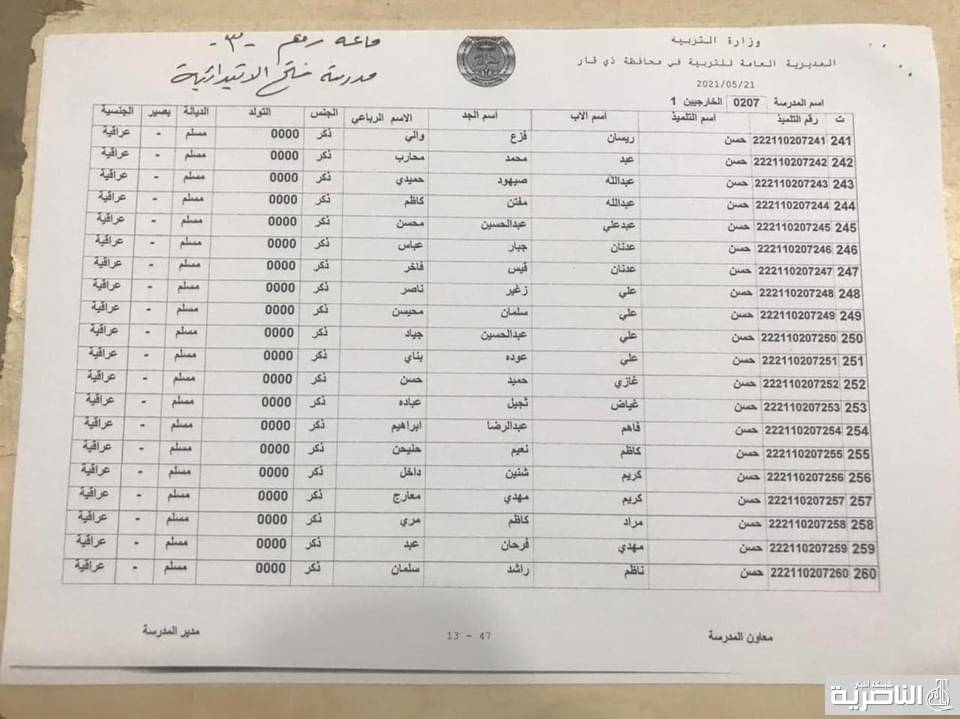 وزارة التربية
المديرية العامة للتربية في محافظة ذي قار
2021/05/21
قاعه رقم -٣-
مدرسة فتح الابتدائية
اسم المدرسة 0207 الخارجيين 1
ت رقم التلميذ اسم التلميذ اسم الاب اسم الجد الاسم الرباعي الجنس التولد الديانة بصير الجنسية
241 222110207241 حسن ريسان فزع والي ذكر 0000 مسلم - عراقية
242 222110207242 حسن عبد محمد محارب ذكر 0000 مسلم - عراقية
243 222110207243 حسن عبدالله صيهود حميدي ذكر 0000 مسلم - عراقية
244 222110207244 حسن عبدالله مفتن كاظم ذكر 0000 مسلم - عراقية
245 222110207245 حسن عبدعلي عبدالحسين محسن ذكر 0000 مسلم - عراقية
246 222110207246 حسن عدنان جبار عباس ذكر 0000 مسلم - عراقية
247 222110207247 حسن عدنان قيس فاخر ذكر 0000 مسلم - عراقية
248 222110207248 حسن علي زغير ناصر ذكر 0000 مسلم - عراقية
249 222110207249 حسن علي سلمان محيسن ذكر 0000 مسلم - عراقية
250 222110207250 حسن علي عبدالحسين جياد ذكر 0000 مسلم - عراقية
251 222110207251 حسن علي عوده بناي ذكر 0000 مسلم - عراقية
252 222110207252 حسن غازي حميد حسن ذكر 0000 مسلم - عراقية
253 222110207253 حسن غياض ثجيل عباده ذكر 0000 مسلم - عراقية
254 222110207254 حسن فاهم عبدالرضا ابراهيم ذكر 0000 مسلم - عراقية
255 222110207255 حسن كاظم نعيم حليحن ذكر 0000 مسلم - عراقية
256 222110207256 حسن كريم شنين داخل ذكر 0000 مسلم - عراقية
257 222110207257 حسن كريم مهدي معارج ذكر 0000 مسلم - عراقية
258 222110207258 حسن مراد كاظم مري ذكر 0000 مسلم - عراقية
259 222110207259 حسن مهدي فرحان عبد ذكر 0000 مسلم - عراقية
260 222110207260 حسن ناظم راشد سلمان ذكر 0000 مسلم - عراقية
معاون المدرسة 13 - 47 مدير المدرسة
شبكة أخبار
الناصرية